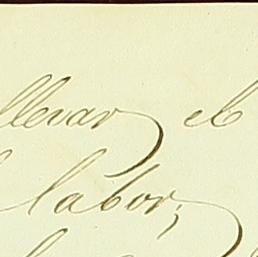 llevar el
labor,